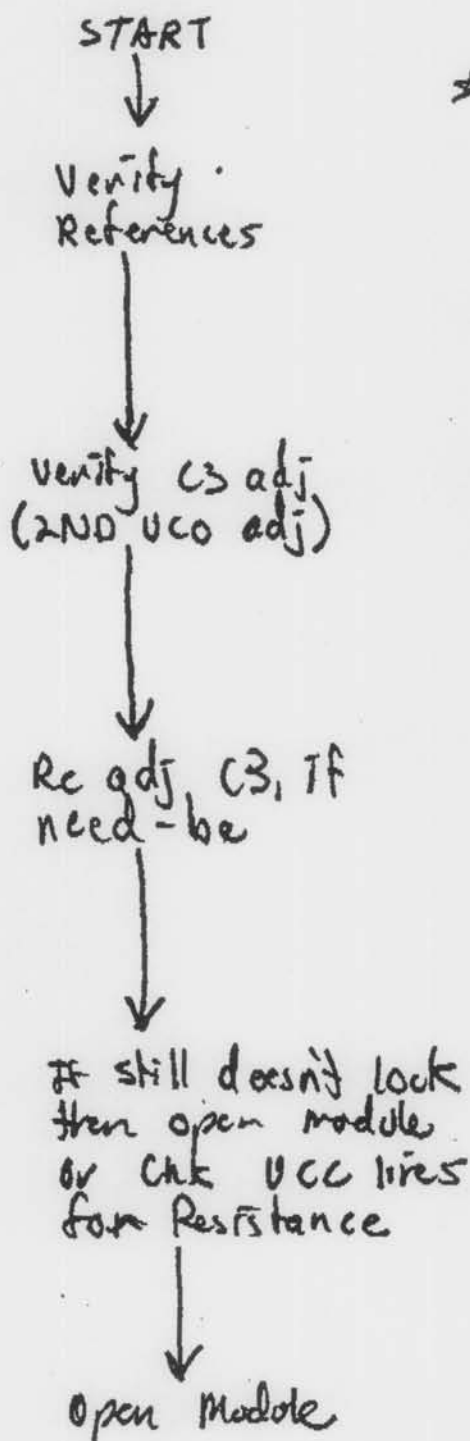 START
Verify
References
verify C3 adj
(2ND VCO adj)
Re adj, C3, if
need-be
If still doesn't lock
then open module
or Chk VCC lines
for Resistance
Open Module